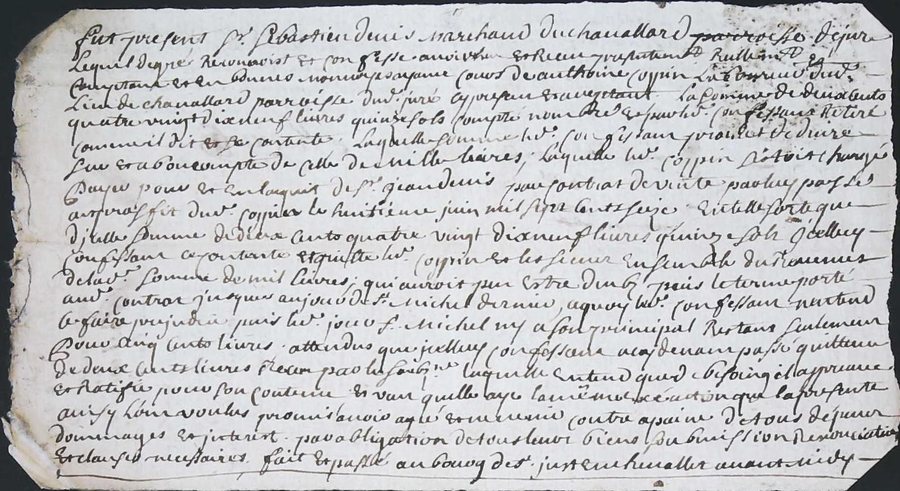 fut present Sr. Sebastien denis marchand du chavallard parroisse de jure
Lequel degre Reconnoist et confesse avoir eu et Receu presentemt. Reellemt. et
Comptant et en bonnes monnoyes ayant cours de anthoine coppin Laboureur dud.
Lieu de chavallard parroisse dud. jure cy present et acceptant La somme de deux cents
quatre vingt dix neuf livres quinze sols compté nombré et par led. confessant Retiré
comme il dit et se contente. Laquelle somme led. confessant
sur et a bon compte de celle de mille livres, laquelle led. coppin s'estoit chargé
Payer pour et en l'acquit de Sr. jean denis par contrat de vente par luy passé
au proffit dud. coppin le huitieme juin mil sept cents seize En telle sorte que
d'jcelle somme de deux cents quatre vingt dix neuf livres quinze sols jcelluy
confessant ce contente et quitte led. coppin et les siens Ensemble du Revenus
de lad. somme de mil livres, qui auroit peu estre deub, puis le terme porté
aud. contrat jusques au jour de St. Michel dernier, a quoy led. confessant n'entend
ce faire prejudice puis led. jour St. Michel ny a son principal Restant seulement
Pour cinq cents livres. attendus que jcelluy confessant a cy devant passé quittance
de deux cents livres Receu par le laquelle entend que de besoing il approuve
et Ratifie pour son contenu et sans qu'elle aye la mesme que la presente
ainsy l'ont voulus promis avoir agreé et ne venir contre a paine de tous depans
dommages et jnterest. par obligation de tous leurs biens soubmission Renonciation
et clauses necessaires. fait et passé au bourg de St. just en chevallet avant midy